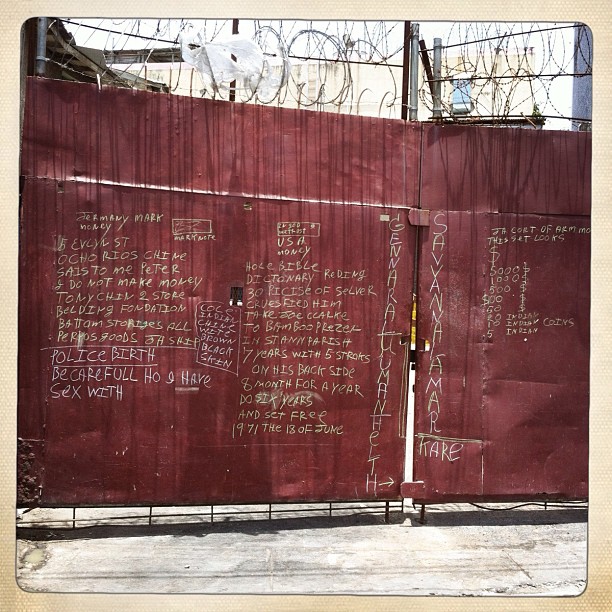 GERMANY MARK
MONEY
MARK NOTE
5 EVLYN ST
OCHO RIOS CHINE
SAIS TO ME PETER
I DO NOT MAKE MONEY
TONY CHIN 2 STORE
BELDING FONDATION
BATTOM STORIES ALL
PERIOS GOODS JA SHIP
POLICE BIRTH
BE CAREFULL HO I HAVE
SEX WITH
INDIAN
CHINE
BROWN
BLACK
SKIN
USA
MONEY
HOLE BIBLE
DICTONARY REDING
30 PICISE OF SELVER
CRUESFIED HIM
TAKE JOE CLARKE
TO BAMBOO PREZER
IN ST ANN PARISH
7 YEARS WITH 5 STROKS
ON HIS BACK SIDE
8 MONTH FOR A YEAR
DO SIX YEARS
AND SET FREE
1971 THE 18 OF JUNE
SAVANNA LA MAR
KARE
JA CORT OF ARM MO
THIS SET LOOKS
$
5000 $
1000 $
500 $
100 $
50
20 INDIAN
10 INDIAN COINS
5 INDIAN